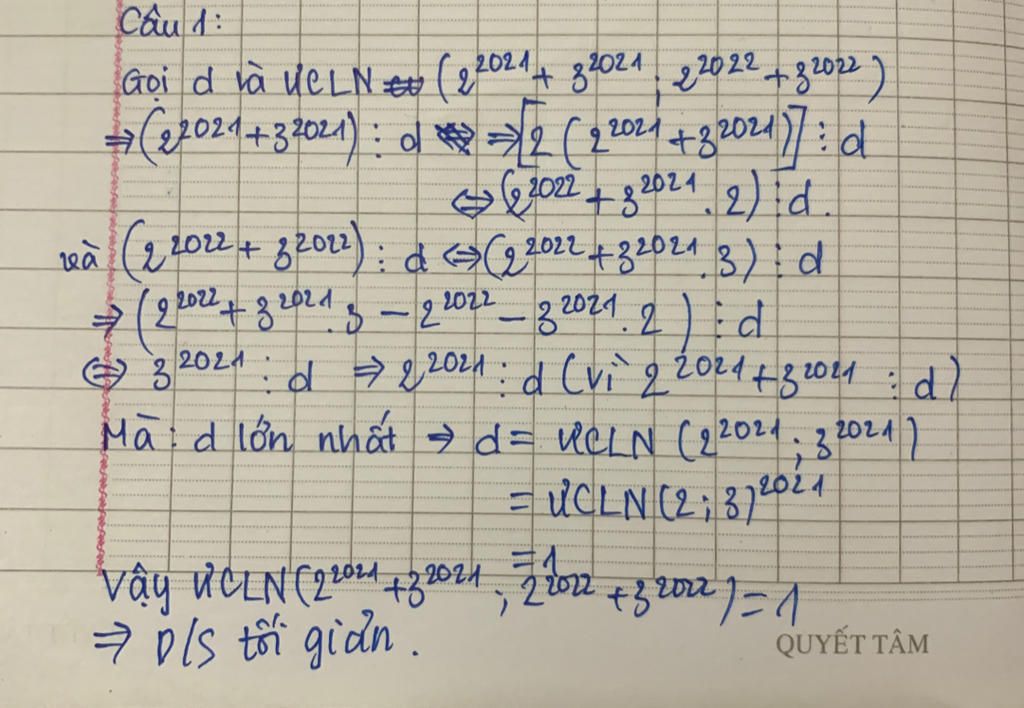 Câu 1:
Gọi d và ƯCLN (2^2021 + 3^2021 ; 2^2022 + 3^2022)
⇒ (2^2021 + 3^2021) ⋮ d ⇒ [2 (2^2021 + 3^2021)] ⋮ d
⇔ (2^2022 + 3^2021 . 2) ⋮ d.
và (2^2022 + 3^2022) ⋮ d ⇔ (2^2022 + 3^2021 . 3) ⋮ d
⇒ (2^2022 + 3^2021 . 3 − 2^2022 − 3^2021 . 2) ⋮ d
⇔ 3^2021 ⋮ d ⇒ 2^2021 ⋮ d (vì 2^2021 + 3^2021 ⋮ d)
Mà : d lớn nhất ⇒ d = ƯCLN (2^2021 ; 3^2021)
= ƯCLN (2 ; 3)^2021
= 1
Vậy ƯCLN (2^2021 + 3^2021 ; 2^2022 + 3^2022) = 1
⇒ P/S tối giản.
QUYẾT TÂM